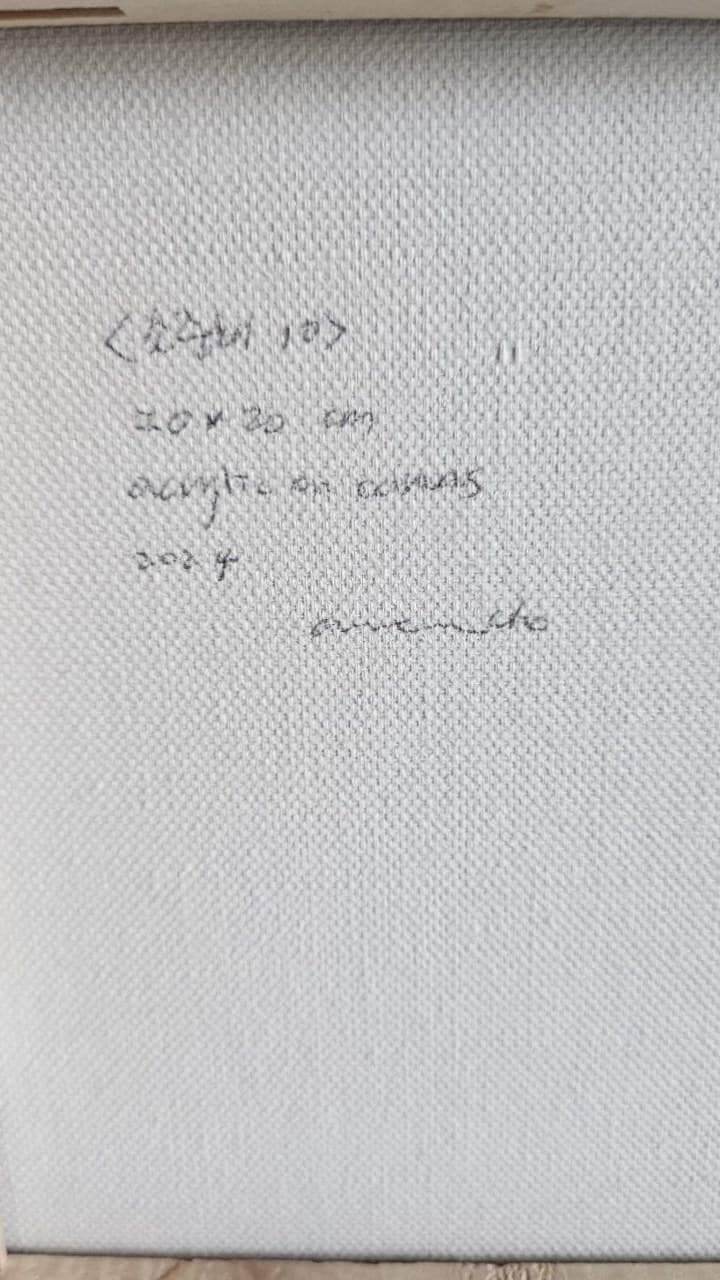 < 10>
20 x 20 cm
acrylic on canvas
2024
cho